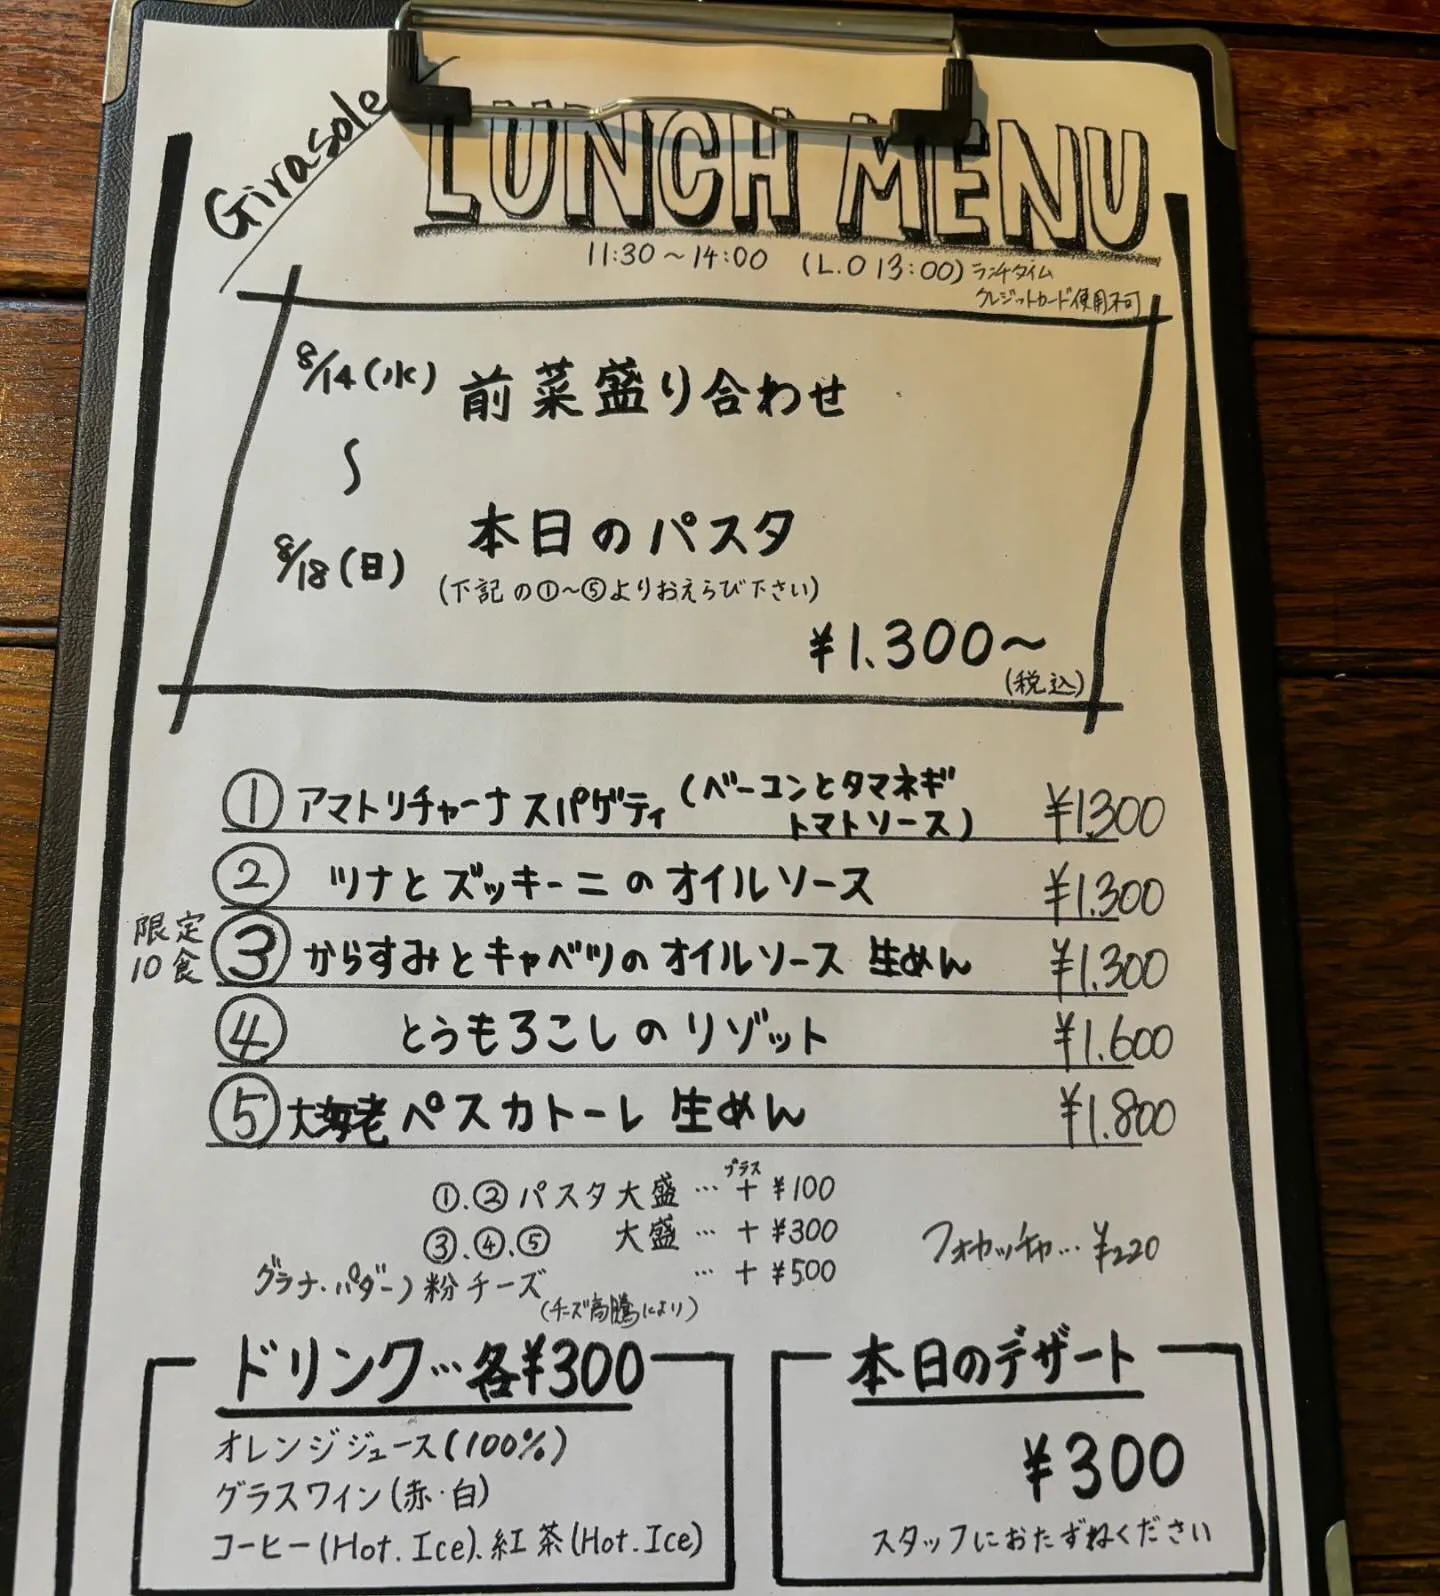 Girasole
LUNCH MENU
11:30～14:00 (L.O 13:00) ランチタイム
クレジットカード使用不可
8/14(水) 前菜盛り合わせ
～
8/18(日) 本日のパスタ
(下記の①～⑤よりおえらび下さい)
¥1.300～
(税込)
① アマトリチャーナ スパゲティ (ベーコンとタマネギ
トマトソース) ¥1300
② ツナとズッキーニのオイルソース ¥1.300
限定
10食 ③ からすみとキャベツのオイルソース 生めん ¥1.300
④ とうもろこしのリゾット ¥1.600
⑤ 大海老ペスカトーレ 生めん ¥1.800
プラス
①.② パスタ大盛 … + ¥100
③.④.⑤ 大盛 … + ¥300
フォカッチャ… ¥220
グラナ・パダーノ粉チーズ … + ¥500
(チーズ高騰により)
ドリンク…各¥300
オレンジジュース(100%)
グラスワイン(赤・白)
コーヒー(Hot.Ice).紅茶(Hot.Ice)
本日のデザート
¥300
スタッフにおたずねください